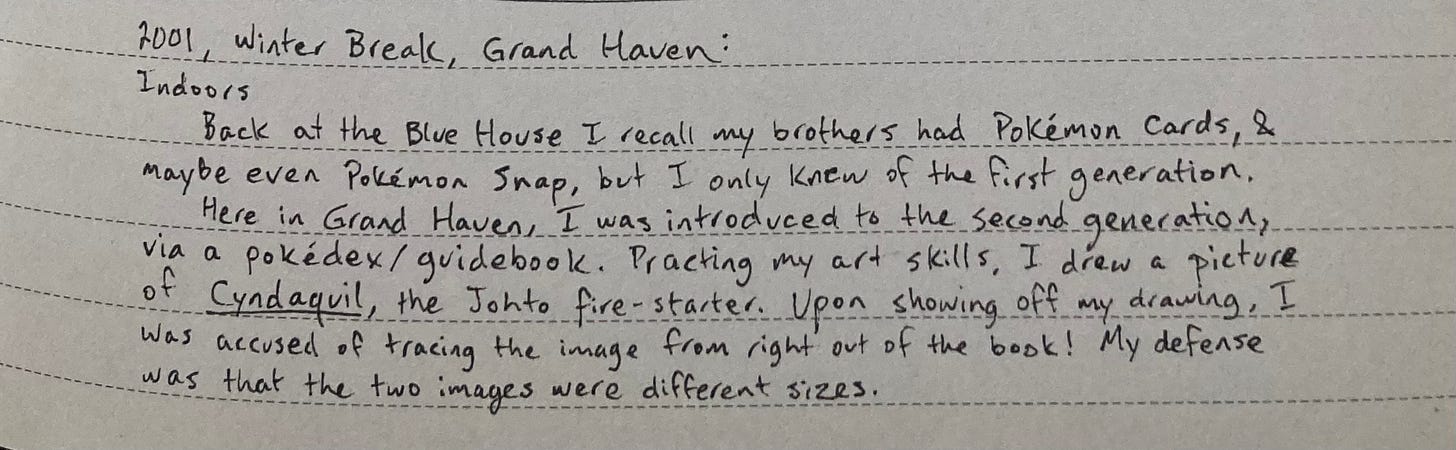 2001, Winter Break, Grand Haven:
Indoors
Back at the Blue House I recall my brothers had Pokémon Cards, &
maybe even Pokémon Snap, but I only knew of the first generation.
Here in Grand Haven, I was introduced to the second generation,
via a pokédex/guidebook. Practing my art skills, I drew a picture
of Cyndaquil, the Johto fire-starter. Upon showing off my drawing, I
was accused of tracing the image from right out of the book! My defense
was that the two images were different sizes.